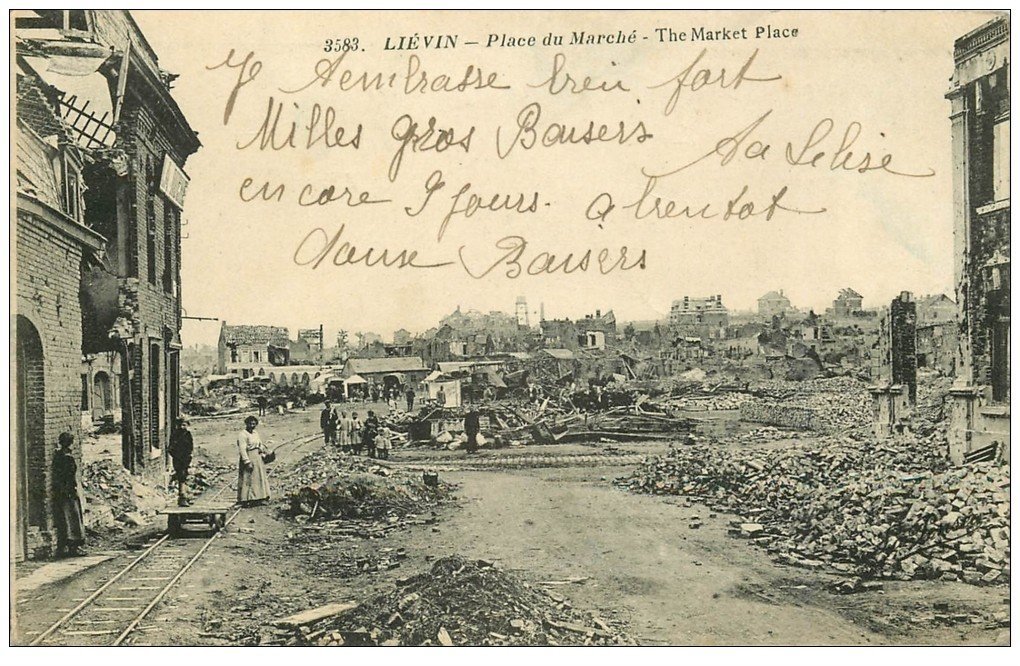 3583. LIÉVIN — Place du Marché - The Market Place
Je t'embrasse bien fort
Milles gros Baisers
ta Selise
encore 9 jours. a bientot
douse Baisers